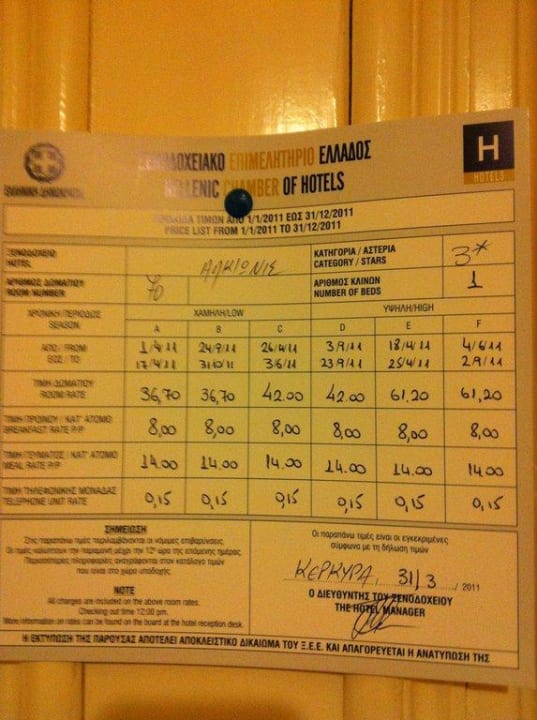 H
HOTELS
ΕΛΛΗΝΙΚΗ ΔΗΜΟΚΡΑΤΙΑ
ΞΕΝΟΔΟΧΕΙΑΚΟ ΕΠΙΜΕΛΗΤΗΡΙΟ ΕΛΛΑΔΟΣ
HELLENIC CHAMBER OF HOTELS
ΤΙΜΩΝ ΑΠΟ 1/1/2011 ΕΩΣ 31/12/2011
PRICE LIST FROM 1/1/2011 TO 31/12/2011
ΞΕΝΟΔΟΧΕΙΟ
HOTEL
ΑΛΚΙΩΝΙΣ
ΚΑΤΗΓΟΡΙΑ / ΑΣΤΕΡΙΑ
CATEGORY / STARS
3*
ΑΡΙΘΜΟΣ ΔΩΜΑΤΙΟΥ
ROOM NUMBER
ΑΡΙΘΜΟΣ ΚΛΙΝΩΝ
NUMBER OF BEDS
1
ΧΡΟΝΙΚΗ ΠΕΡΙΟΔΟΣ
SEASON
ΧΑΜΗΛΗ/LOW
ΥΨΗΛΗ/HIGH
A B C D E F
ΑΠΟ / FROM 1/4/11 24/9/11 26/4/11 3/9/11 18/4/11 4/6/11
ΕΩΣ / TO 17/4/11 31/10/11 3/6/11 23/9/11 25/4/11 2/9/11
ΤΙΜΗ ΔΩΜΑΤΙΟΥ
ROOM RATE
36,70 36,70 42.00 42.00 61,20 61,20
ΤΙΜΗ ΠΡΩΙΝΟΥ / ΚΑΤ' ΑΤΟΜΟ
BREAKFAST RATE P/P
8,00 8,00 8,00 8,00 8,00 8,00
ΤΙΜΗ ΓΕΥΜΑΤΟΣ / ΚΑΤ' ΑΤΟΜΟ
MEAL RATE P/P
14.00 14.00 14.00 14.00 14.00 14.00
ΤΙΜΗ ΤΗΛΕΦΩΝΙΚΗΣ ΜΟΝΑΔΑΣ
TELEPHONE UNIT RATE
0,15 0,15 0,15 0,15 0,15 0,15
ΣΗΜΕΙΩΣΗ
Στις παραπάνω τιμές περιλαμβάνονται οι νόμιμες επιβαρύνσεις.
Οι τιμές καλύπτουν την παραμονή μέχρι την 12η ώρα της επόμενης ημέρας.
Περισσότερες πληροφορίες αναγράφονται στον κατάλογο τιμών
που είναι στο χώρο υποδοχής.
NOTE
All charges are included on the above room rates.
Checking out time 12:00 pm.
More information on rates can be found on the board at the hotel reception desk.
Οι παραπάνω τιμές είναι οι εγκεκριμένες
σύμφωνα με τη δήλωση τιμών
ΚΕΡΚΥΡΑ, 31/3 / 2011
Ο ΔΙΕΥΘΥΝΤΗΣ ΤΟΥ ΞΕΝΟΔΟΧΕΙΟΥ
THE HOTEL MANAGER
Η ΕΚΤΥΠΩΣΗ ΤΗΣ ΠΑΡΟΥΣΑΣ ΑΠΟΤΕΛΕΙ ΑΠΟΚΛΕΙΣΤΙΚΟ ΔΙΚΑΙΩΜΑ ΤΟΥ Ξ.Ε.Ε. ΚΑΙ ΑΠΑΓΟΡΕΥΕΤΑΙ Η ΑΝΑΤΥΠΩΣΗ ΤΗΣ